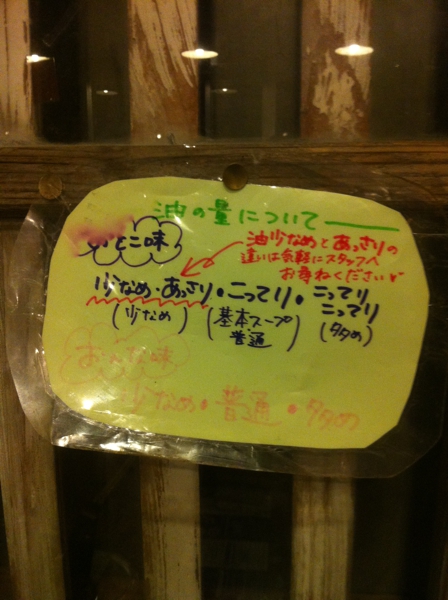 油の量について
おとこ味
油少なめとあっさりの
違いは気軽にスタッフへ
お尋ねください
少なめ・あっさり・こってり・こってり
こってり
(少なめ) (基本スープ 普通) (多め)
おんな味
少なめ・普通・多め